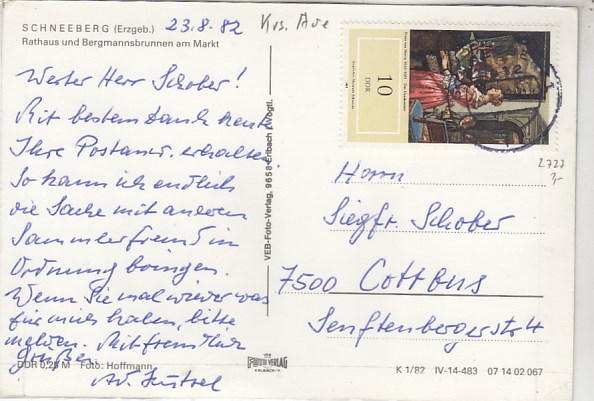 SCHNEEBERG (Erzgeb.) 23.8.82
Rathaus und Bergmannsbrunnen am Markt
Werter Herr Schober!
Mit bestem Dank heute
Ihre Postanw. erhalten.
So kann ich endlich
die Sache mit anderen
Sammlerfreund in
Ordnung bringen.
Wenn Sie mal wieder was
für mich haben, bitte
melden. Mit freundlich
Grüßen
DDR 0,20 M Foto: Hoffmann
VEB-Foto-Verlag, 9658 Erlbach i. Vogtl.
10
DDR
2727
Herrn
Siegfr. Schober
7500 Cottbus
Senftenbergerstr
VEB
FOTO VERLAG
ERLBACH
K 1/82 IV-14-483 07 14 02 067